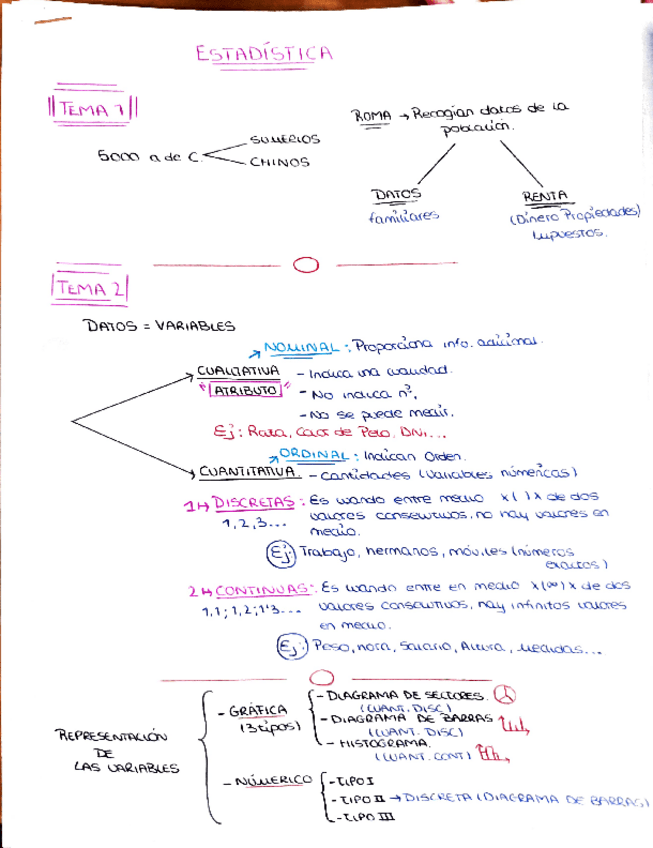 ESTADÍSTICA
TEMA 1
ROMA → Recogian datos de la
población.
5000 a de C.
SUMERIOS
CHINOS
DATOS
familiares
RENTA
(Dinero Propiedades)
Impuestos.
TEMA 2
DATOS = VARIABLES
NOMINAL: Proporciona info. adicional.
CUALITATIVA - Indica una cualidad.
"ATRIBUTO" - No indica nº.
- No se puede medir.
Ej: Raza, Color de Pelo, DNI...
ORDINAL: Indican Orden.
CUANTITATIVA. - Cantidades (Variables númericas)
1↦ DISCRETAS: Es cuando entre medio x( )x de dos
1,2,3... valores consecutivos, no hay valores en
medio.
Ej: Trabajo, hermanos, móviles (números
exactos)
2↦ CONTINUAS: Es cuando entre en medio x(∞)x de dos
1,1; 1,2; 1'3... valores consecutivos, hay infinitos valores
en medio.
Ej: Peso, hora, Salario, Altura, Medidas...
REPRESENTACIÓN
DE
LAS VARIABLES
- GRÁFICA
(3 tipos)
- DIAGRAMA DE SECTORES.
(CUANT. DISC)
- DIAGRAMA DE BARRAS
(CUANT. DISC)
- HISTOGRAMA.
(CUANT. CONT)
- NÚMERICO
- TIPO I
- TIPO II → DISCRETA (DIAGRAMA DE BARRAS)
- TIPO III